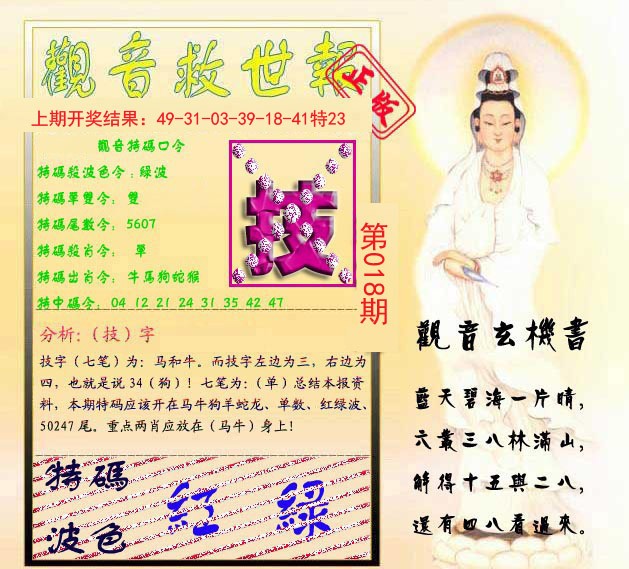 觀音救世報
正版
上期开奖结果：49-31-03-39-18-41特23
觀音特碼口令
特碼殺波色令：綠波
特碼單雙令：雙
特碼尾數令：5607
特碼殺肖令：單
特碼出肖令：牛馬狗蛇猴
特中碼令：04 12 21 24 31 35 42 47
技
第018期
分析:（技）字
技字（七笔）为：马和牛。而技字左边为三，右边为
四，也就是说34（狗）！七笔为：（单）总结本报资
料，本期特码应该开在马牛狗羊蛇龙、单数、红绿波、
50247尾。重点两肖应放在（马牛）身上！
特碼
波色
紅 綠
觀音玄機書
藍天碧海一片晴，
六叢三八林滿山，
解得十五與二八，
還有四八看過來。